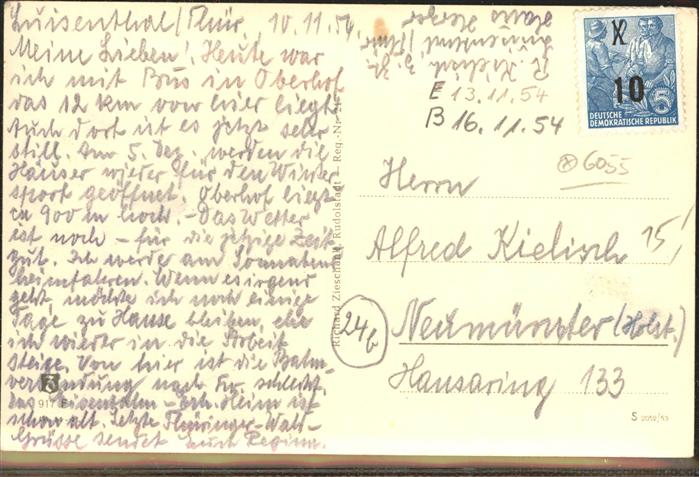 Luisenthal/Thür. 10.11.54.
Meine Lieben! Heute war
ich mit Bus in Oberhof
das 12 km von hier liegt.
Auch dort ist es jetzt sehr
still. Am 5. Dez. werden die
Häuser wieder für den Winter
sport geöffnet. Oberhof liegt
ca 900 m hoch. – Das Wetter
ist noch – für die jetzige Zeit
gut. Ich werde am Sonnabend
heimfahren. Wenn es irgend
geht, möchte ich noch einige
Tage zu Hause bleiben, ehe
ich wieder in die Arbeit
steige. Von hier ist die Bahn-
verbindung nach schlecht,
das Eisenbahn Heim ist
schon alt. Letzte Thüringer-Wald-
Grüsse sendet Euch Regina.
R. Kielisch z. Zt.
Luisenthal/Thür
Haus
E 13.11.54
B 16.11.54
X
10
5
DEUTSCHE
DEMOKRATISCHE REPUBLIK
6055
Herrn
Alfred Kielisch
15,
24b
Neumünster (Holst.)
Hansaring 133
Richard Zieschank, Rudolstadt - Reg.-Nr.
3
917
S 2052/53